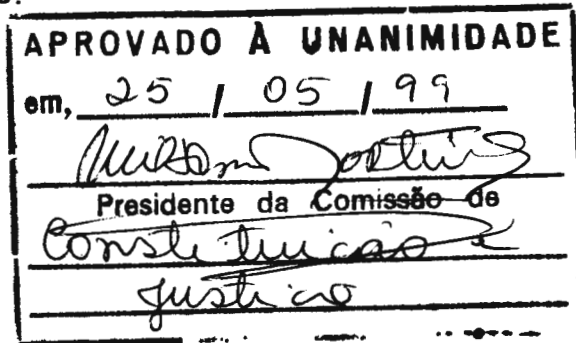 APROVADO À UNANIMIDADE
em, 25 / 05 / 99
Presidente da Comissão de
Constituição e
Justiça